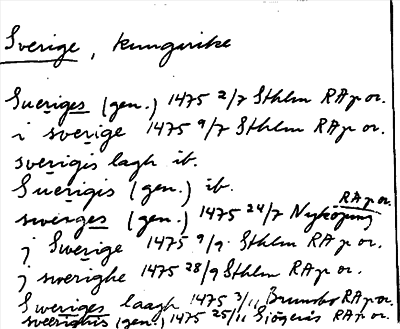 Sverige, kungarike
Sueriges (gen.) 1475 2/7 Sthlm RAp or.
i sverige 1475 9/7 Sthlm RAp or.
sverigis lagh ib.
Suerigis (gen.) ib.
swerges (gen.) 1475 24/7 Nyköping RAp or.
j Swerige 1475 9/9 Sthlm RAp or.
j swerighe 1475 28/9 Sthlm RAp or.
Sweriges laagh 1475 3/11 RAp or.
sverighis (gen.) 1475 25/11 RAp or.